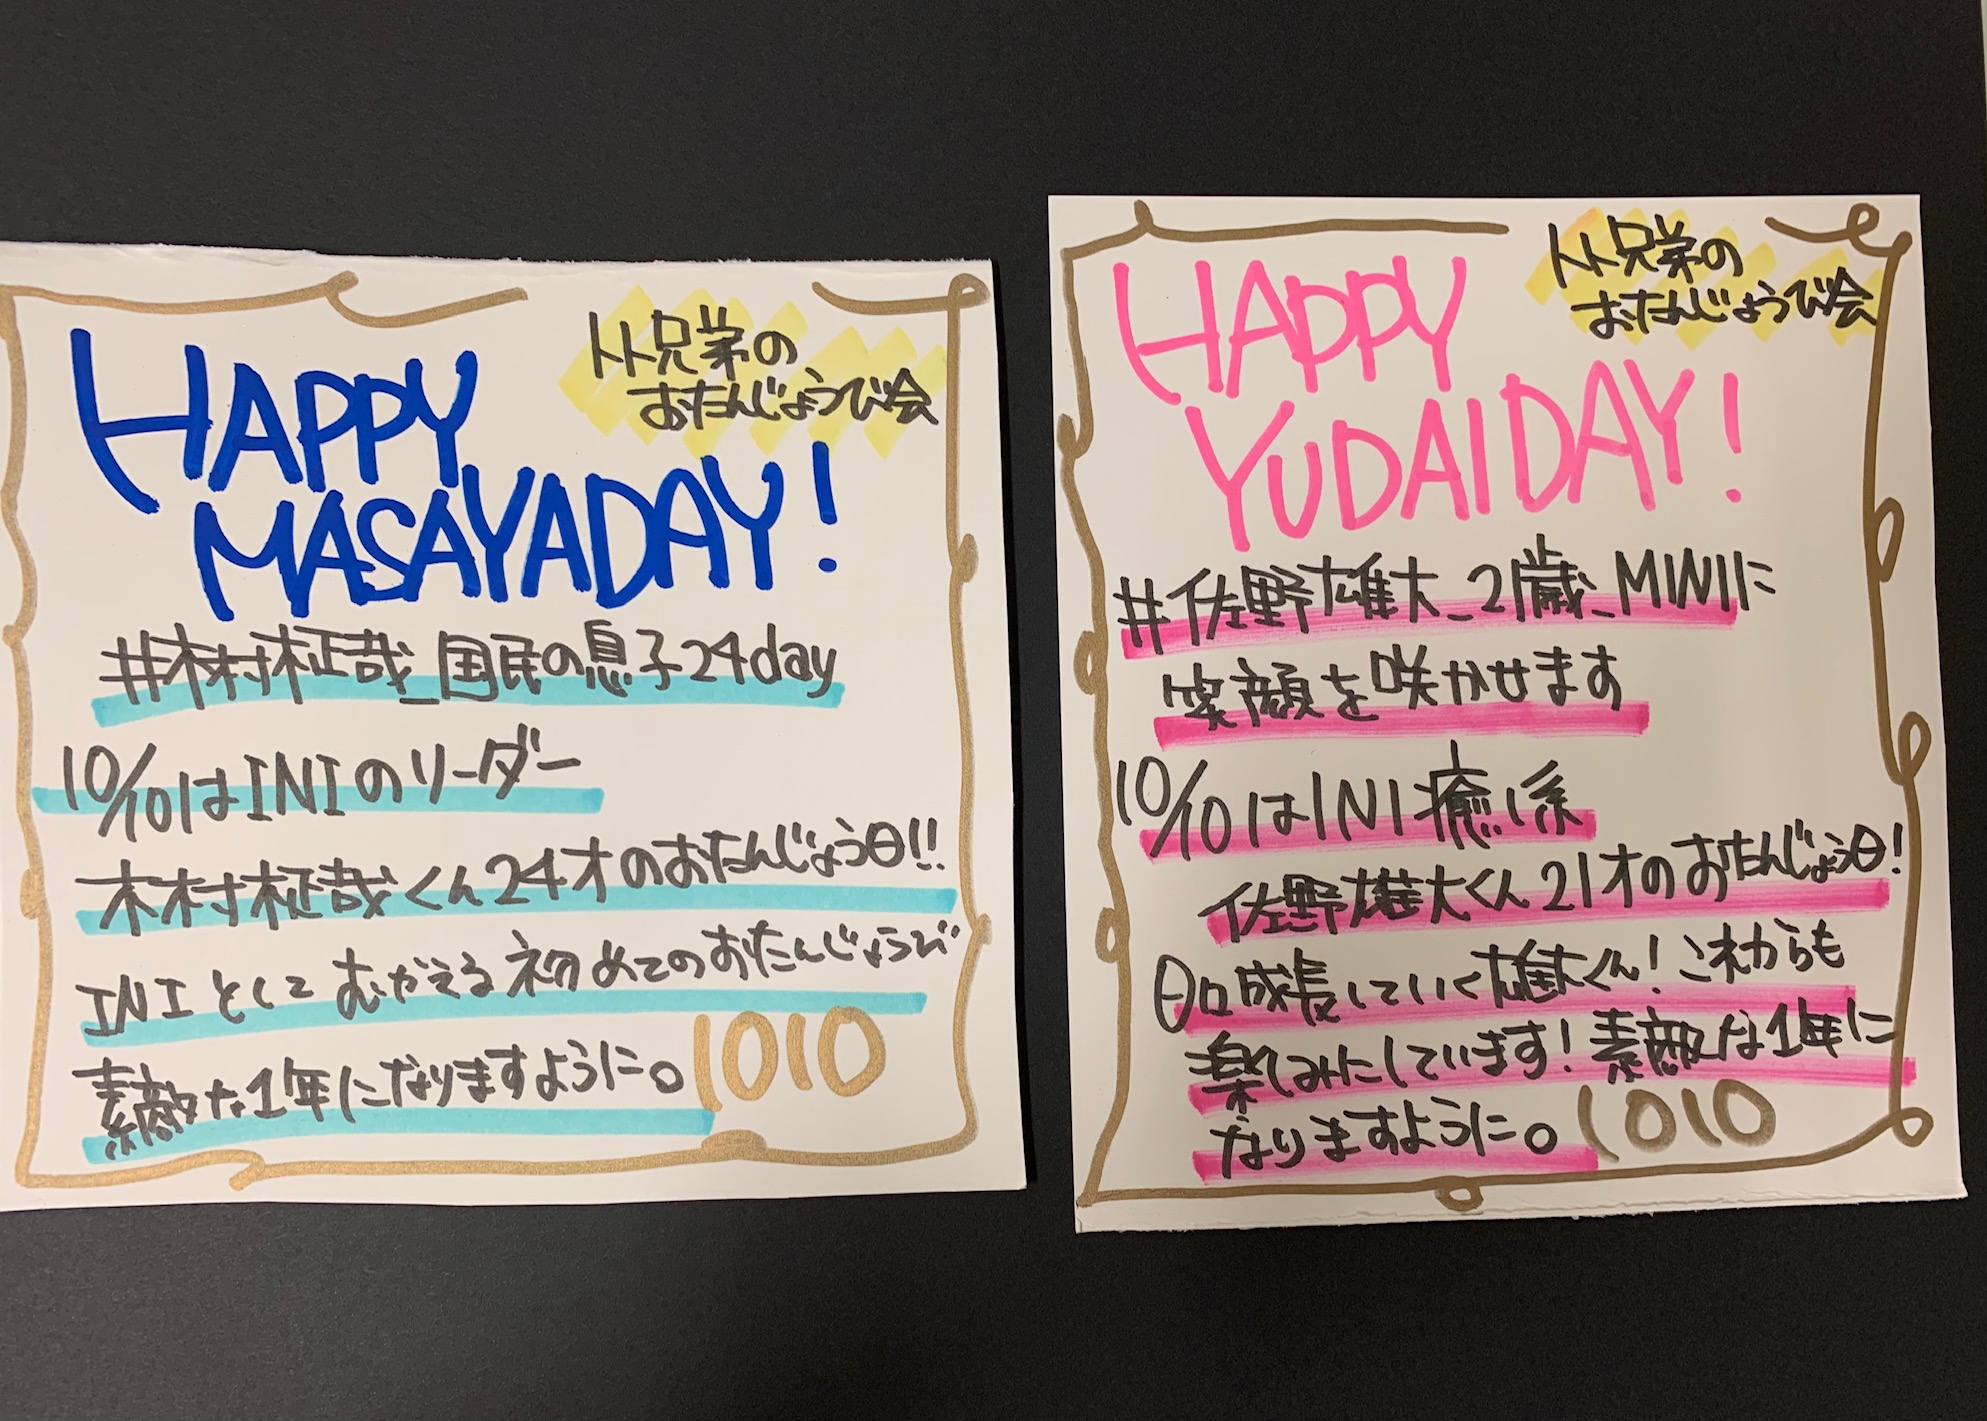 トト兄弟の
おたんじょうび会
HAPPY
MASAYADAY!
#木村柾哉_国民の息子24day
10/10はINIのリーダー
木村柾哉くん24才のおたんじょう日!!
INIとしてむかえる初めてのおたんじょうび
素敵な1年になりますように。
1010
トト兄弟の
おたんじょうび会
HAPPY
YUDAIDAY!
#佐野雄大_21歳_MINIに
笑顔を咲かせます
10/10はINI癒し系
佐野雄大くん21才のおたんじょう日!
日口成長していく雄大くん!これからも
楽しみにしています!素敵な1年に
なりますように。
1010